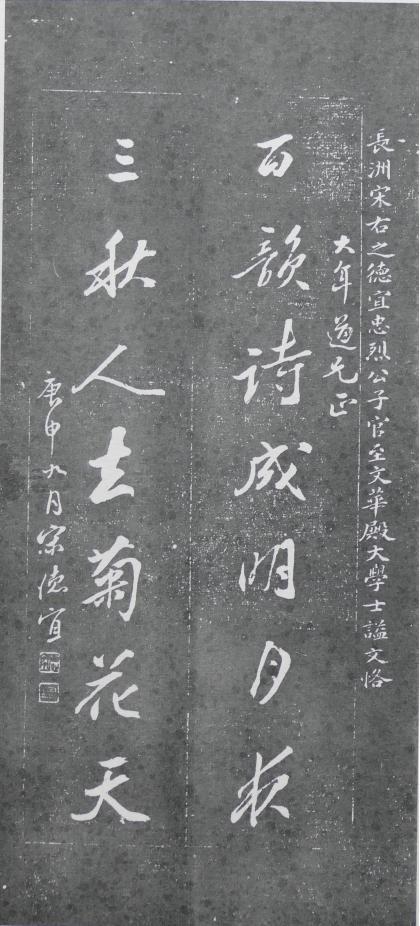 長洲宋右之德宜忠烈公子官至文華殿大學士諡文恪
大年道兄正
百韻詩成明月夜
三秋人在菊花天
庚申九月宋德宜